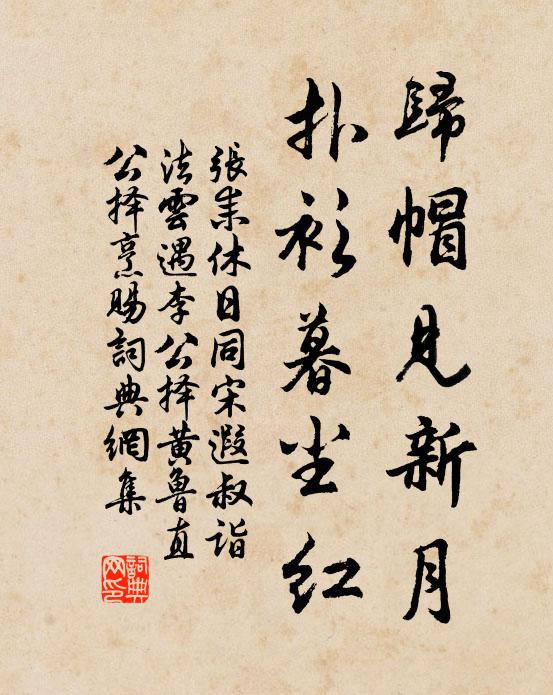 歸帽見新月
扑衫暮尘红
張耒休日同宋遐叔詣
法雲遇李公择黄魯直
公择烹賜詞典網集
詞典網印